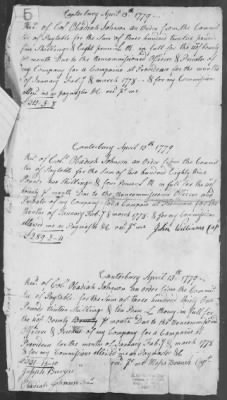 5
Canterbury April 13th 1779
Recd of Colo Obadiah Johnson an Order from the Commit
tee of Paytable for the Sum of three hundred twelve pounds
five Shillings & Eight pence L M in full for the 20/ bounty
& month Due to the Noncommissioned Officers & Privates of
my Company for a Campaine at Providence for the months
of January Feby & march 1778 & for my Commission
£312.5.8
Canterbury April 13th 1779
Recd of Colo Obadiah Johnson an Order from the Commit
tee of Paytable for the Sum of two hundred Eighty Nine
Pounds two Shillings & four pence L M in full for the 20/
bounty & month Due to the Noncommissioned Officers and
Privates of my Company for a Campaine at Providence for the
Months of January Feby & march 1778 & for my Commission
allowed me as Paymaster &c recd pr me John Williams Capt
Canterbury April 13th 1779
Recd of Colo Obadiah Johnson an Order from the Commit
tee of Paytable for the Sum of three hundred thirty One
Pounds Sixteen Shillings & ten pence L Money in full for
the 20/ bounty & month Due to the Noncommissioned
Officers & Privates of my Company for a Campaine at
Providence for the months of January Feby & march 1778
& for my Commission allowed me as Paymaster &c
recd pr me Capt
Joseph Burgess
Johnson